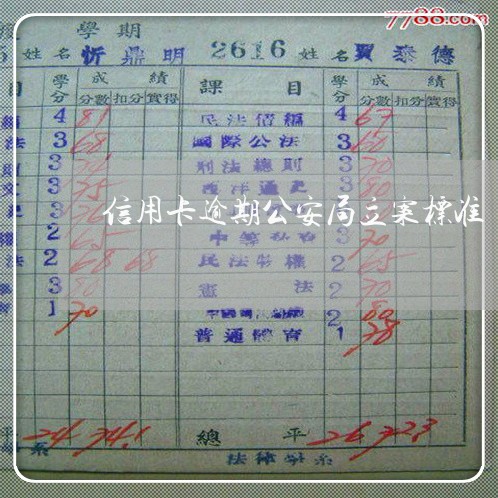 7788.com
度 學期
5 姓名 忻鼎明 2616 姓名 賈泰德
目 學分 成績 課目 學分 成績
分數 扣分 實得 分數 扣分 實得
4 81 民法債編 4 67
法 3 68 國際公法 3 60
3 刑法總則 3 70
文 3 75 西洋通史 3 80
信用卡逾期公安局立案標准
權 2 65 3 70
法 2 68 68 民法物權 2 65
3 80 憲法 2 70
育 1 70 2 80
普通體育 1 78
平 24 74.1 總平 26 72.3
系 法律學系